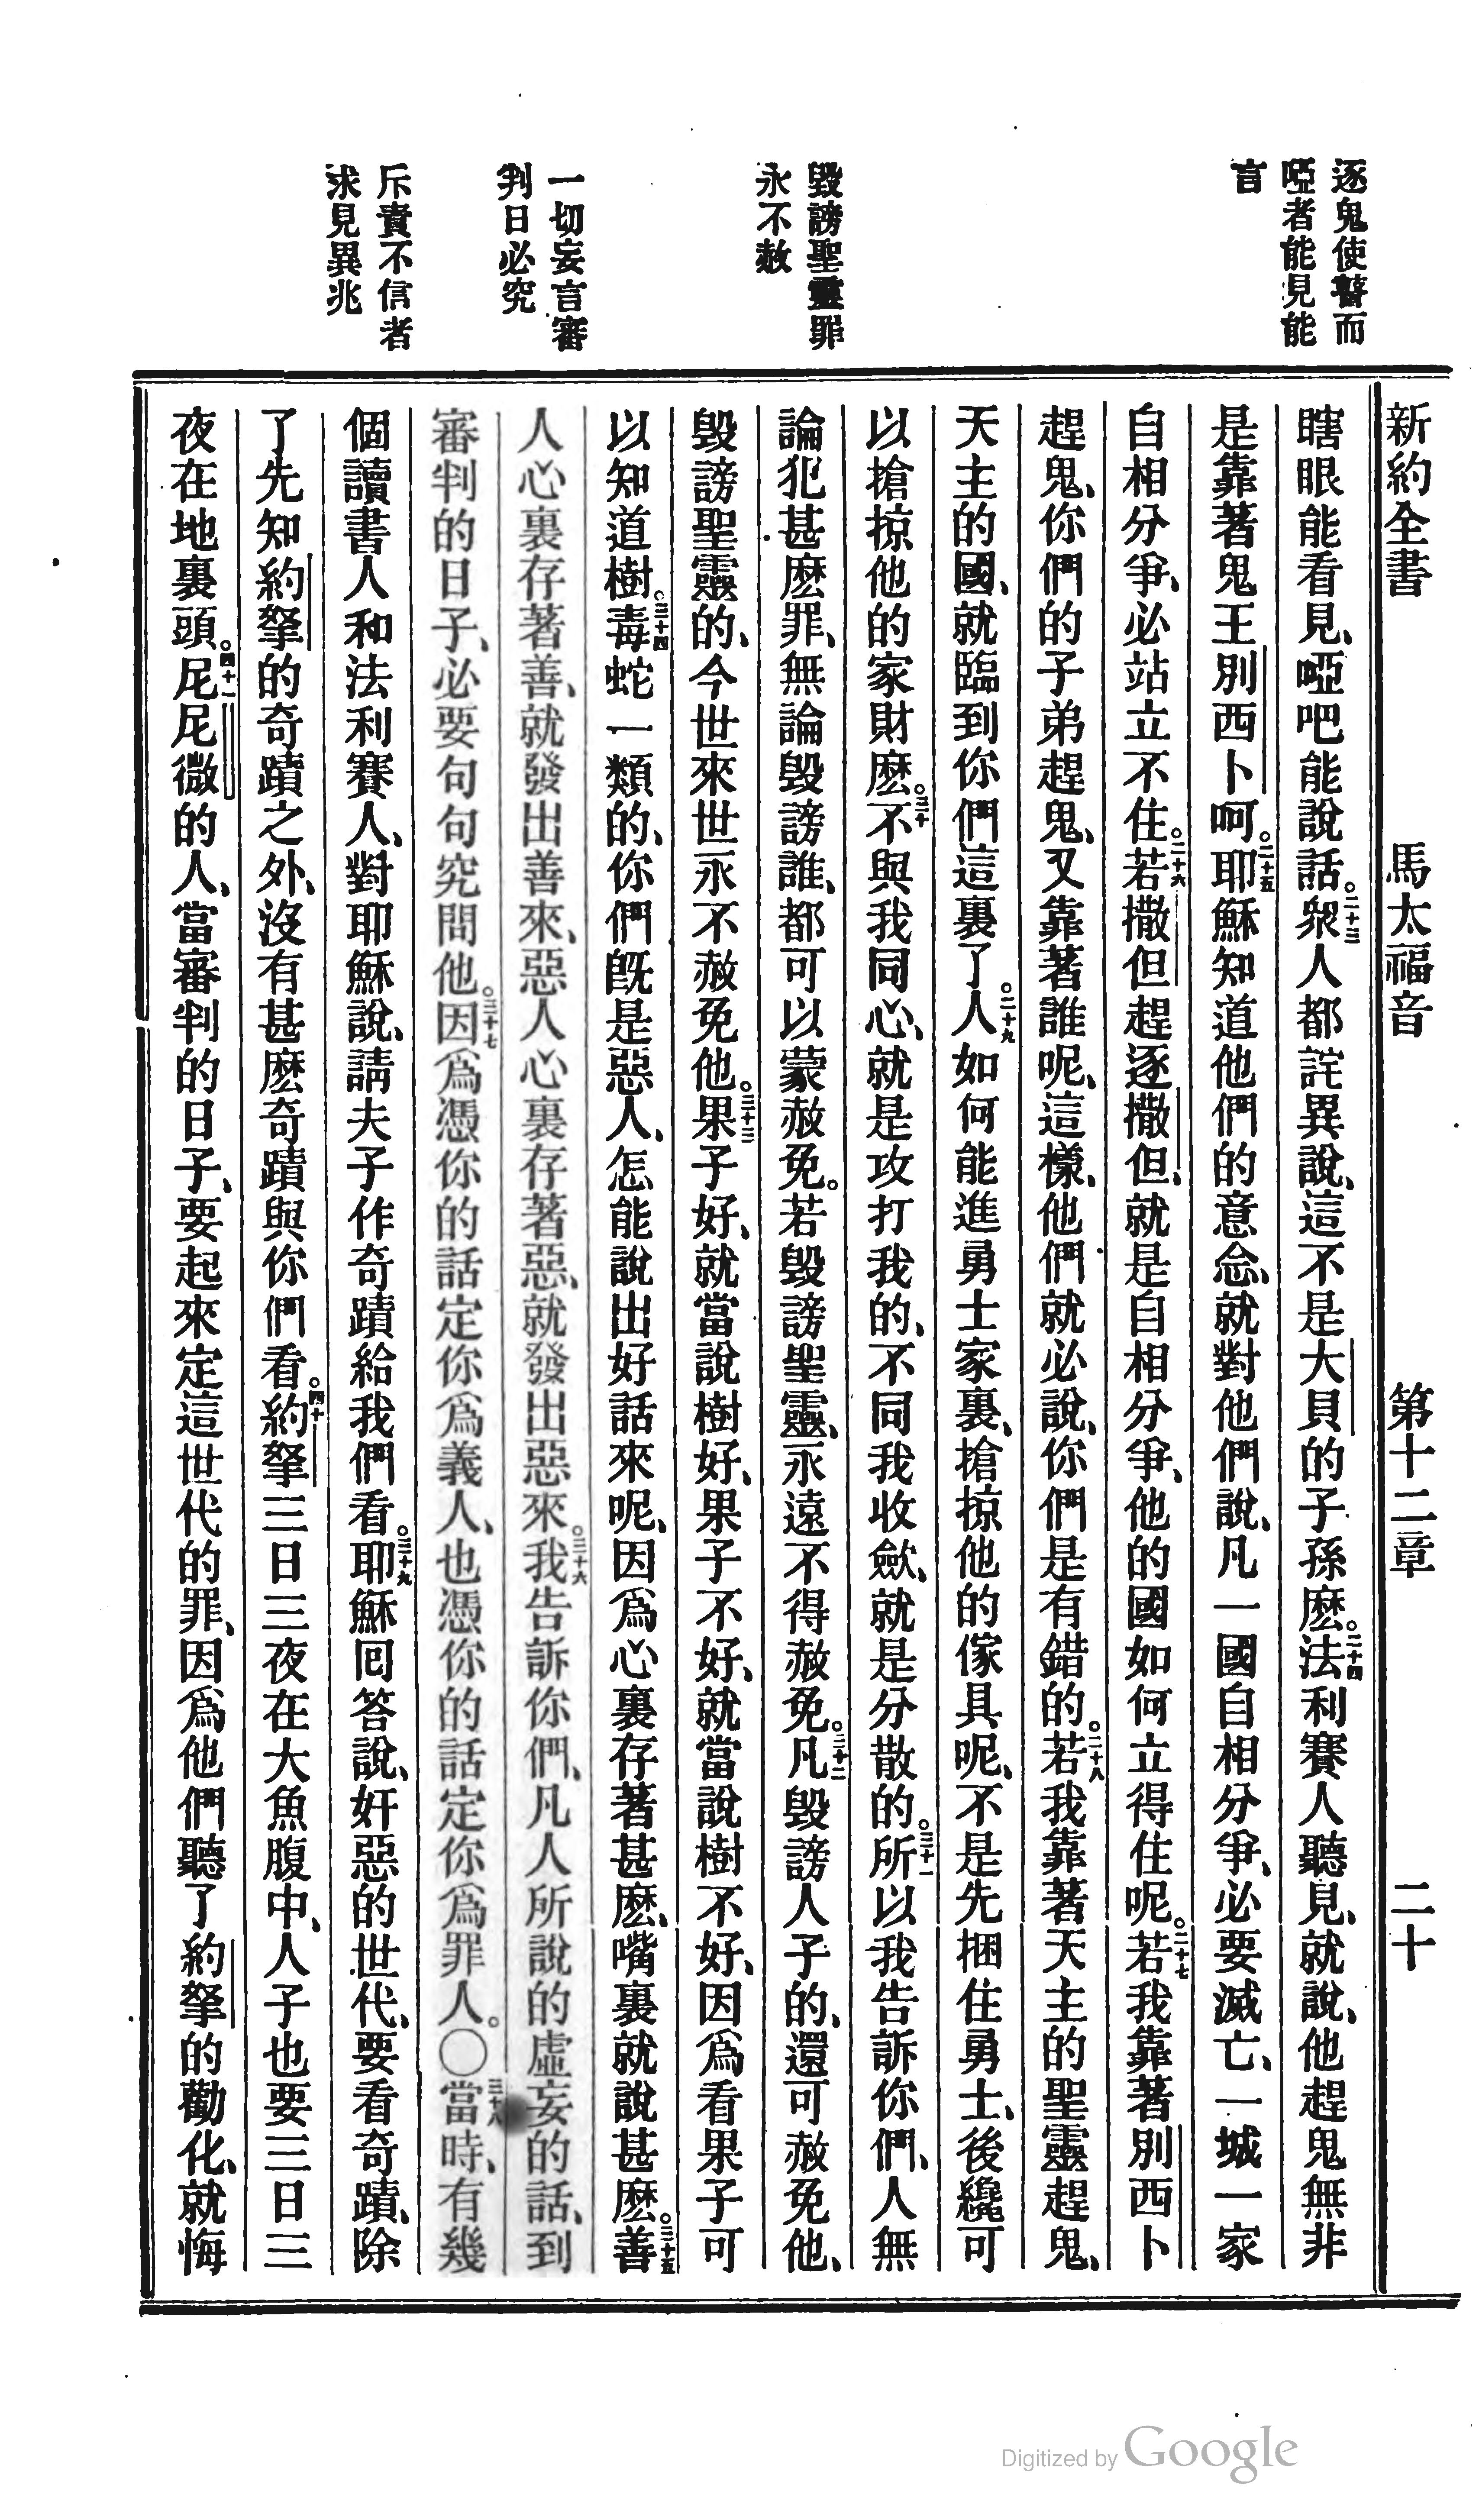 新約全書　馬太福音　第十二章　二十
逐鬼使瞽而
啞者能見能
言
毀謗聖靈罪
永不赦
一切妄言審
判日必究
斥責不信者
求見異兆
瞎眼能看見、啞吧能說話。二十三衆人都詫異說、這不是大貝的子孫麽。二十四法利賽人聽見、就說、他趕鬼無非
是靠著鬼王別西卜呵。二十五耶穌知道他們的意念、就對他們說、凡一國自相分爭、必要滅亡、一城一家
自相分爭、必站立不住。二十六若撒但趕逐撒但、就是自相分爭、他的國如何立得住呢。二十七若我靠著別西卜
趕鬼、你們的子弟趕鬼、又靠著誰呢、這樣、他們就必說、你們是有錯的。二十八若我靠著天主的聖靈趕鬼、
天主的國、就臨到你們這裏了。二十九人如何能進勇士家裏、搶掠他的傢具呢、不是先捆住勇士、後纔可
以搶掠他的家財麽。三十不與我同心、就是攻打我的、不同我收斂、就是分散的。三十一所以我告訴你們、人無
論犯甚麽罪、無論毀謗誰、都可以蒙赦免。若毀謗聖靈、永遠不得赦免。三十二凡毀謗人子的、還可赦免他、
毀謗聖靈的、今世來世永不赦免他。三十三果子好、就當說樹好、果子不好、就當說樹不好、因爲看果子可
以知道樹。三十四毒蛇一類的、你們旣是惡人、怎能說出好話來呢、因爲心裏存著甚麽、嘴裏就說甚麽。三十五善
人心裏存著善、就發出善來、惡人心裏存著惡、就發出惡來。三十六我告訴你們、凡人所說的虛妄的話、到
審判的日子、必要句句究問他。三十七因爲憑你的話定你爲義人、也憑你的話定你爲罪人。〇三十八當時、有幾
個讀書人和法利賽人、對耶穌說、請夫子作奇蹟給我們看。三十九耶穌囘答說、奸惡的世代、要看奇蹟、除
了先知約拏的奇蹟之外、沒有甚麽奇蹟與你們看。四十約拏三日三夜在大魚腹中、人子也要三日三
夜在地裏頭。四十一尼尼微的人、當審判的日子、要起來定這世代的罪、因爲他們聽了約拏的勸化、就悔
Digitized by Google